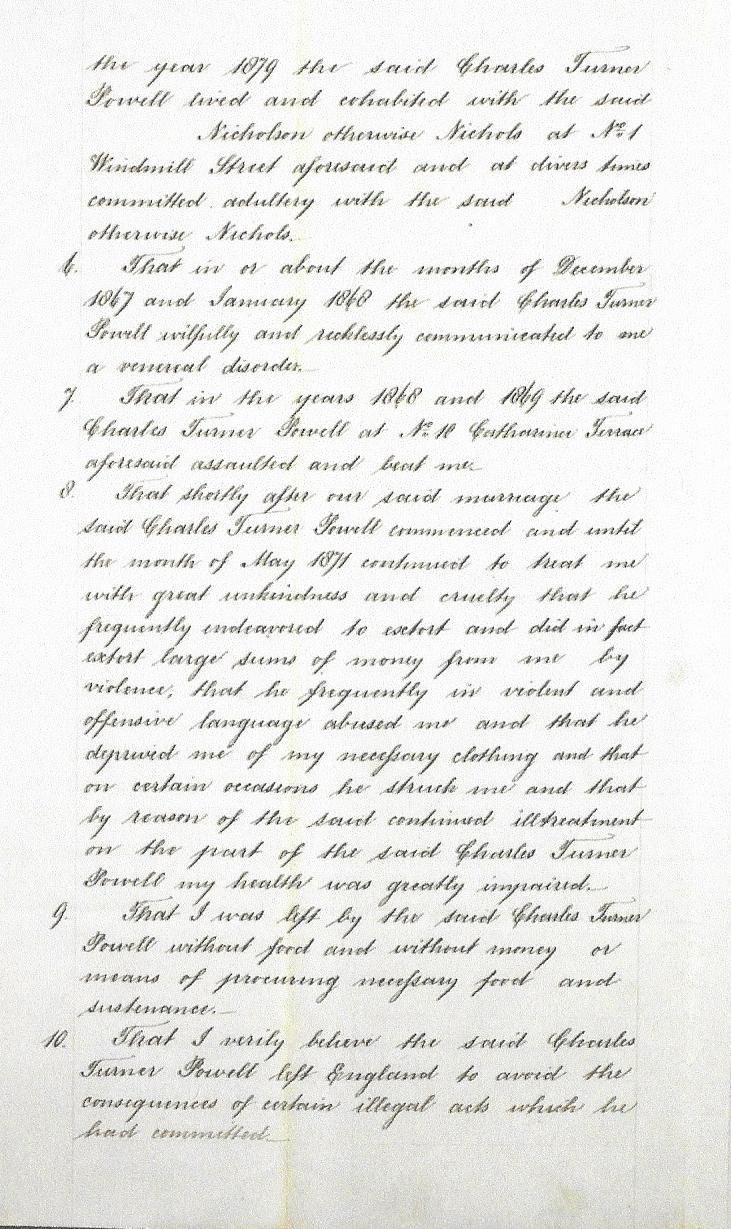 the year 1879 the said Charles Turner
Powell lived and cohabited with the said
Nicholson otherwise Nichols at No. 1
Windmill Street aforesaid and at divers times
committed adultery with the said Nicholson
otherwise Nichols.
6. That in or about the months of December
1867 and January 1868 the said Charles Turner
Powell wilfully and recklessly communicated to me
a venereal disorder.
7. That in the years 1868 and 1869 the said
Charles Turner Powell at No. 18 Catharine Terrace
aforesaid assaulted and beat me.
8. That shortly after our said marriage the
said Charles Turner Powell commenced and until
the month of May 1871 continued to treat me
with great unkindness and cruelty that he
frequently endeavored to extort and did in fact
extort large sums of money from me by
violence, that he frequently in violent and
offensive language abused me and that he
deprived me of my necessary clothing and that
on certain occasions he struck me and that
by reason of the said continued illtreatment
on the part of the said Charles Turner
Powell my health was greatly impaired.
9. That I was left by the said Charles Turner
Powell without food and without money or
means of procuring necessary food and
sustenance.
10. That I verily believe the said Charles
Turner Powell left England to avoid the
consequences of certain illegal acts which he
had committed